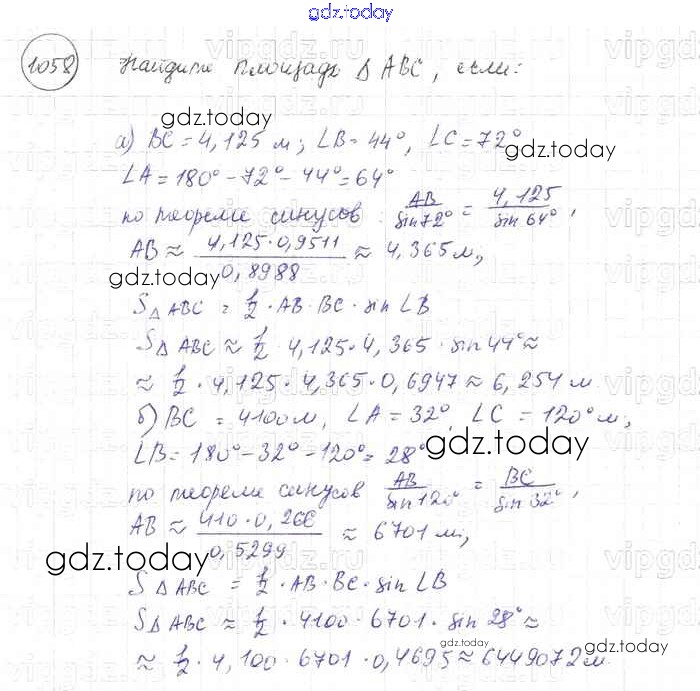 gdz.today
1058 Найдите площадь Δ ABC, если:
gdz.today
а) BC = 4,125 м; ∠B = 44°, ∠C = 72°
gdz.today
∠A = 180° - 72° - 44° = 64°
по теореме синусов: AB/sin 72° = 4,125/sin 64°,
AB ≈ 4,125·0,9511/0,8988 ≈ 4,365 м;
gdz.today
S Δ ABC = 1/2 · AB · BC · sin ∠B
S Δ ABC ≈ 1/2 · 4,125 · 4,365 · sin 44° ≈
≈ 1/2 · 4,125 · 4,365 · 0,6947 ≈ 6,254 м.
б) BC = 4100 м, ∠A = 32°, ∠C = 120° м;
gdz.today
∠B = 180° - 32° - 120° = 28°
по теореме синусов AB/sin 120° = BC/sin 32°,
AB ≈ 410·0,266/0,5299 ≈ 6701 м,
gdz.today
S Δ ABC = 1/2 · AB · BC · sin ∠B
S Δ ABC ≈ 1/2 · 4100 · 6701 · sin 28° ≈
gdz.today
≈ 1/2 · 4,100 · 6701 · 0,4695 ≈ 6449072 м.
gdz.today